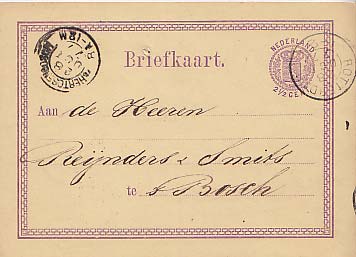 Briefkaart.
NEDERLAND
2½ CENT
Aan de Heeren
Reijnders & Smits
te s Bosch